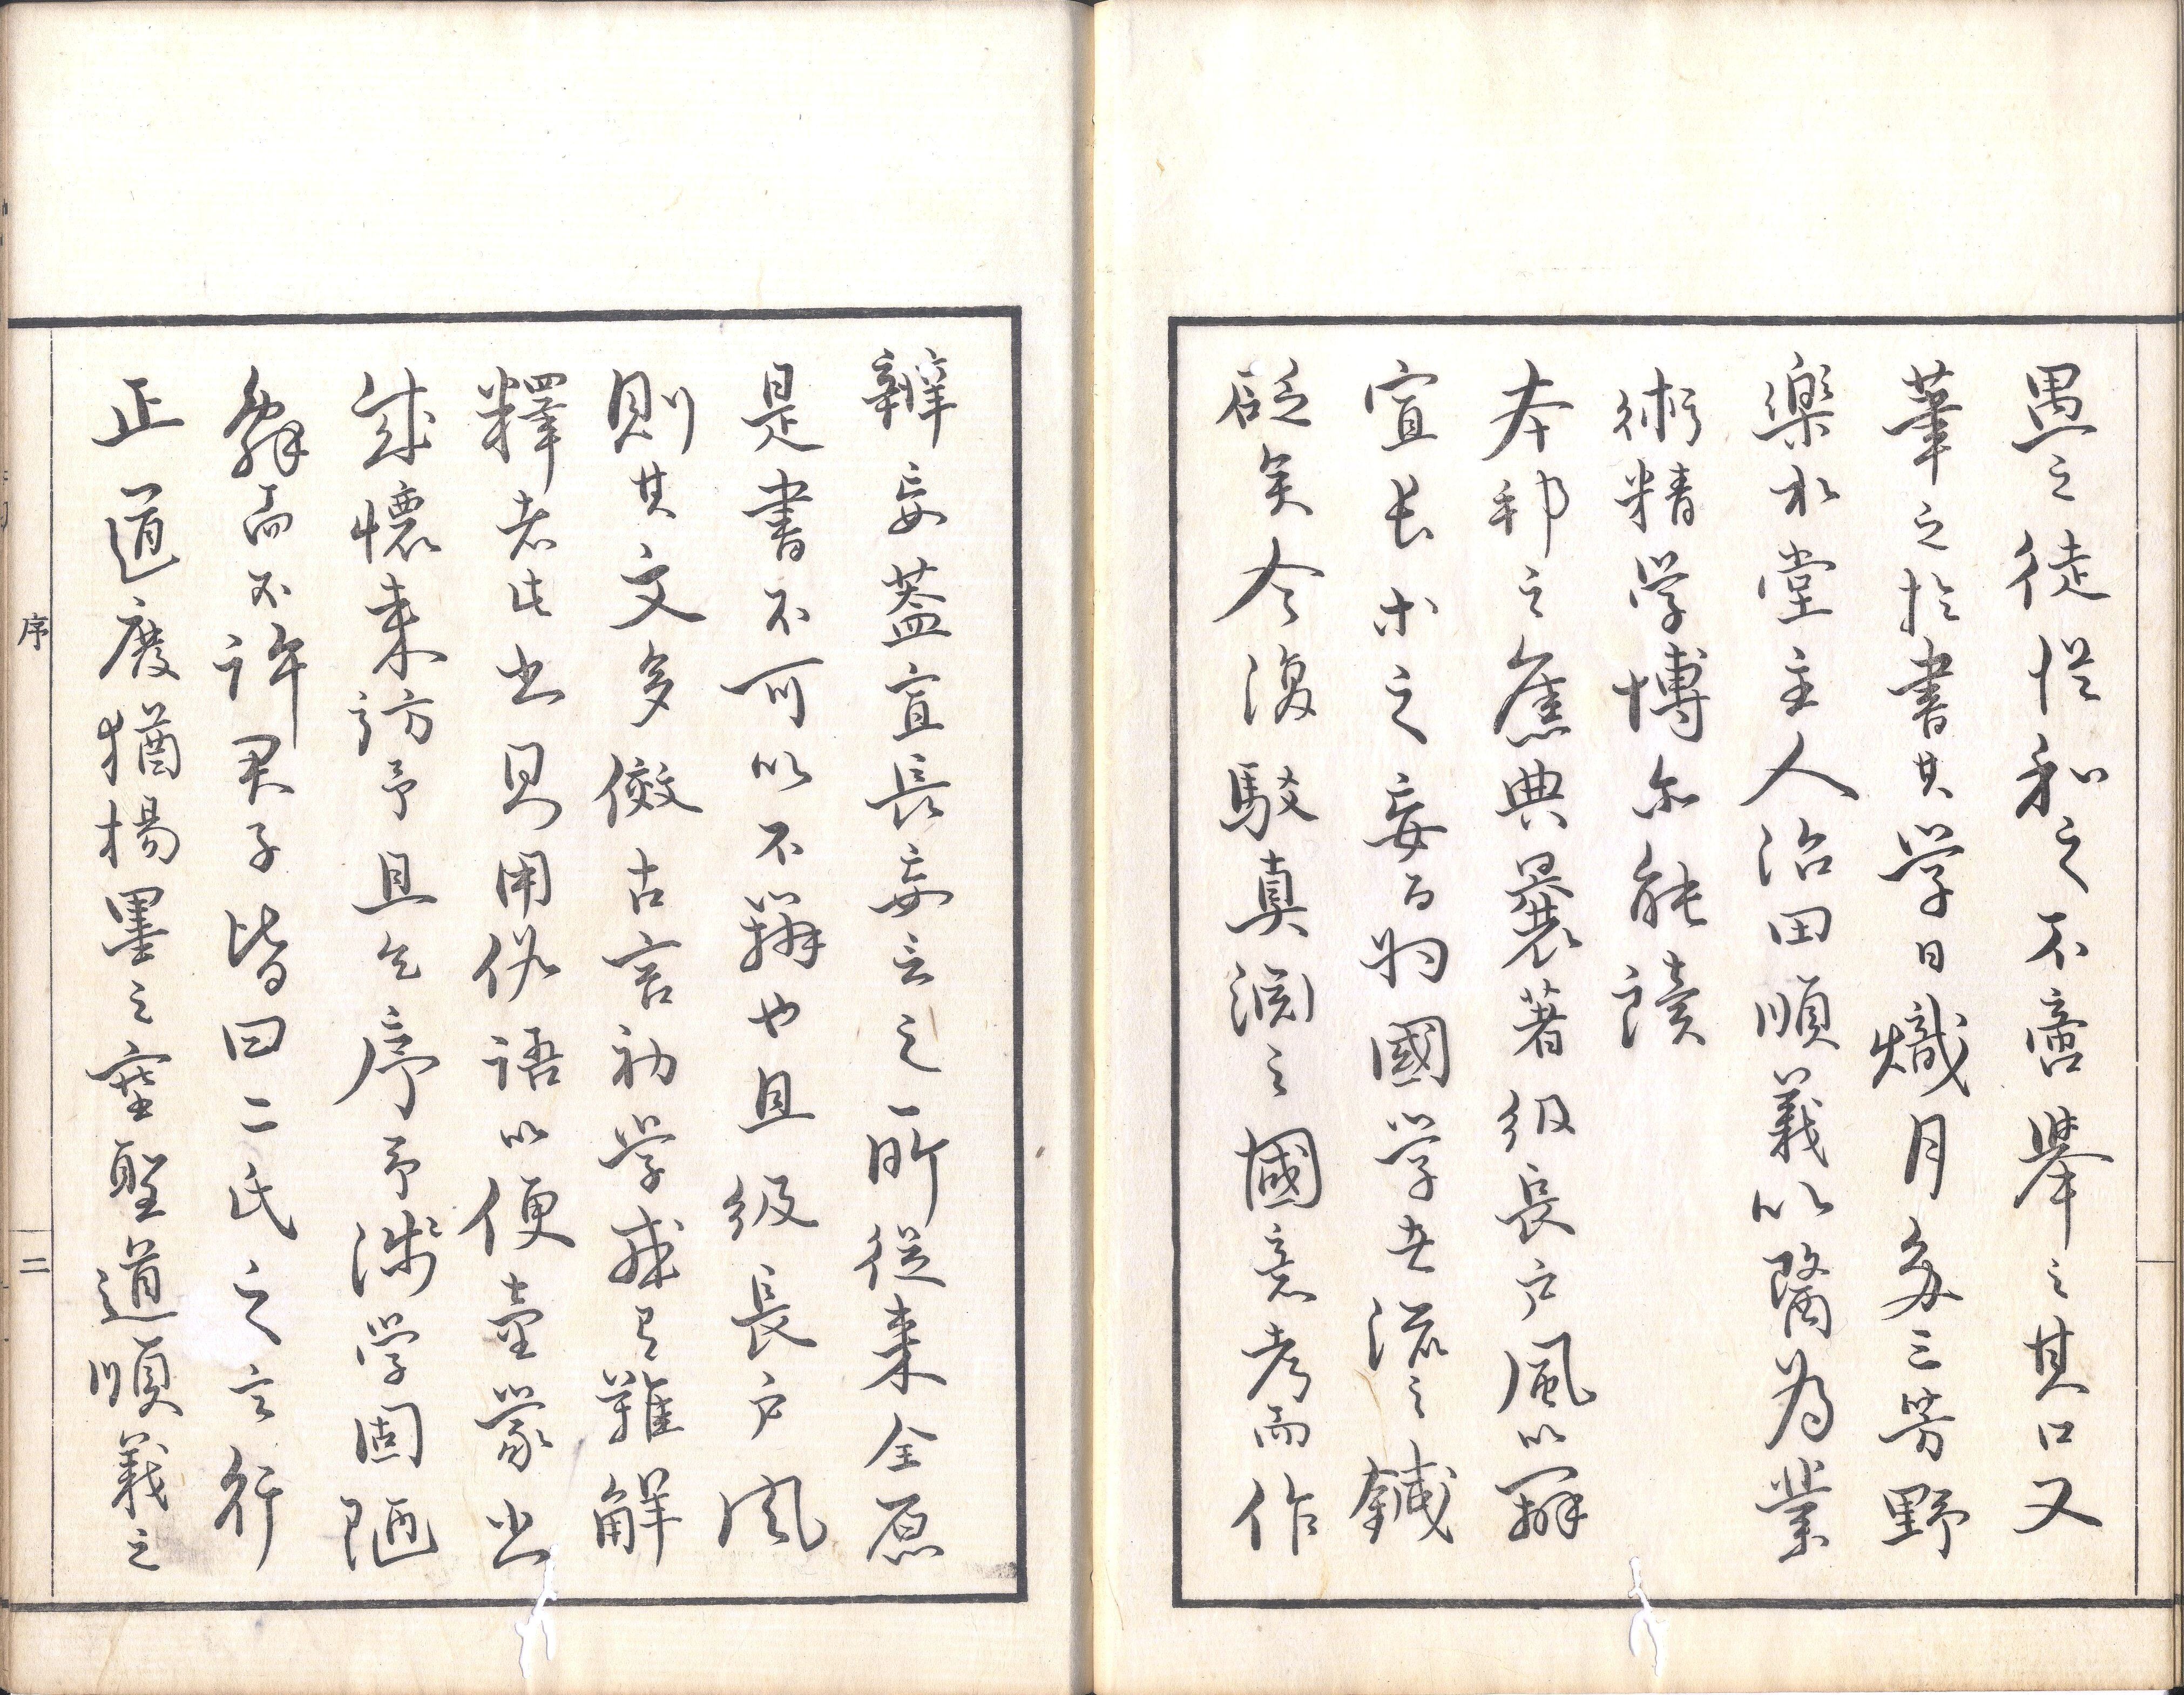 愚之徒従和之不啻挙之其口又
筆之於書其学日熾月多三芳野
楽水堂主人沼田順義以醫為業
術精学博尓能読
本邦之舊典曩著級長戸風以辯
宣長等之妄可為國学者流之鍼
砭矣今復駁真淵之國意考而作
辨妄蓋宣長妄言之所從来全原
是書不可以不辨也且級長戸風
則其文多傚古言初学或有難解
釋者此書則用俗語以便童蒙書
成懐来訪予且乞序予浅学固陋
辞而不許君子皆曰二氏之言行
正道廢猶楊墨之塞聖道順義之
序
二